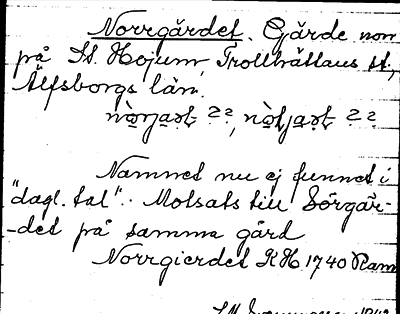 Norrgärdet. Gärde norr
på St. Hojum, Trollhättans st,
Älfsborgs län.
Namnet nu ej funnet i
"dagl. tal". Motsats till Sörgär-
-det på samma gård
Norrgierdet KH 1740 Ram